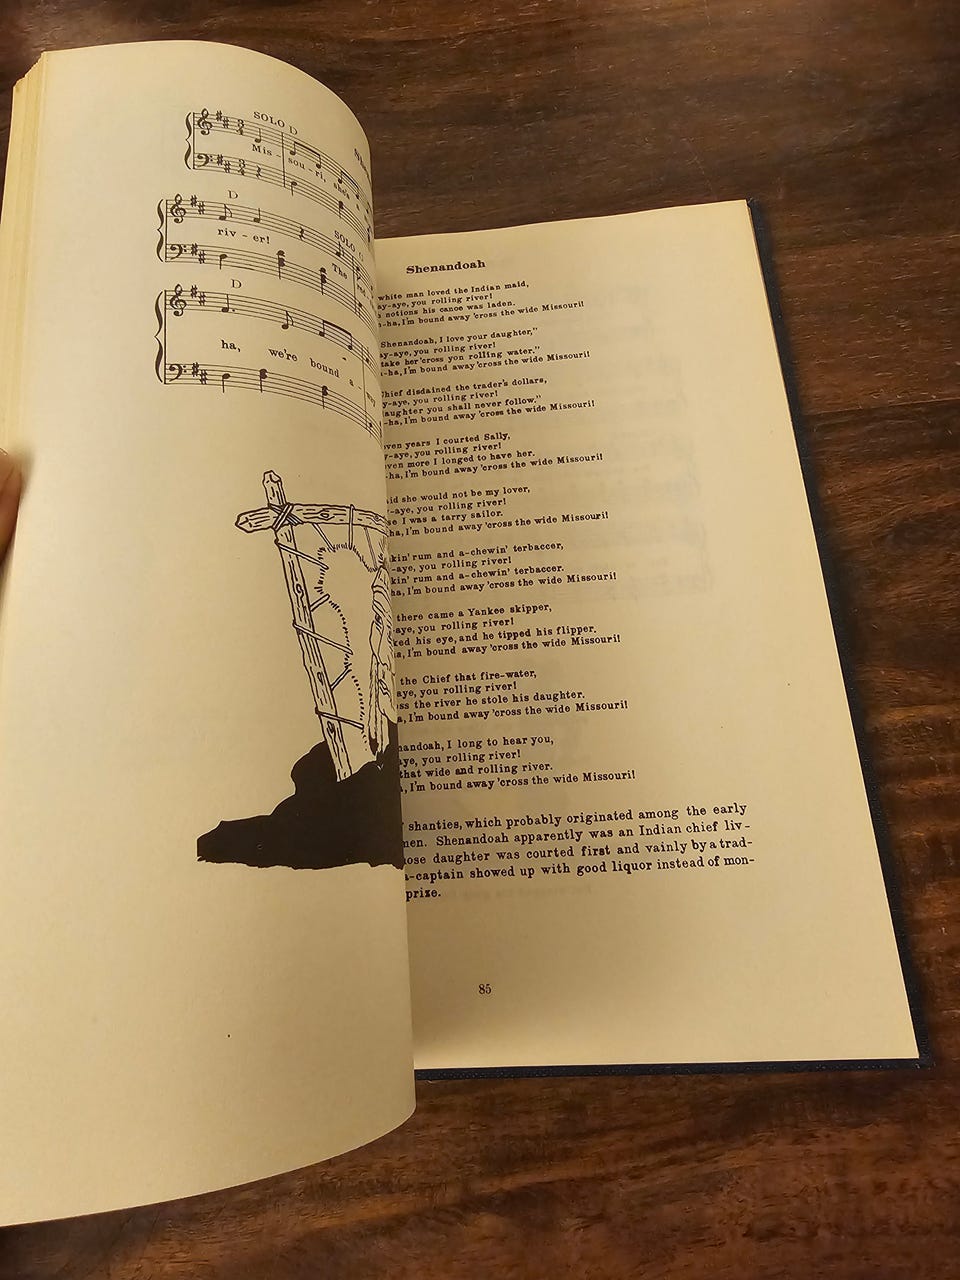 SOLO D
Mis - sou - ri, she's a
D
SOLO G
riv - er!
The
D
ha, we're bound a - way
Shenandoah
white man loved the Indian maid,
you rolling river!
notions his canoe was laden.
I'm bound away 'cross the wide Missouri!
Shenandoah, I love your daughter,"
you rolling river!
take her 'cross yon rolling water."
I'm bound away 'cross the wide Missouri!
Chief disdained the trader's dollars,
you rolling river!
you shall never follow."
I'm bound away 'cross the wide Missouri!
years I courted Sally,
you rolling river!
more I longed to have her.
I'm bound away 'cross the wide Missouri!
she would not be my lover,
you rolling river!
I was a tarry sailor.
I'm bound away 'cross the wide Missouri!
rum and a-chewin' terbaccer,
you rolling river!
rum and a-chewin' terbaccer.
I'm bound away 'cross the wide Missouri!
there came a Yankee skipper,
you rolling river!
his eye, and he tipped his flipper.
I'm bound away 'cross the wide Missouri!
the Chief that fire-water,
you rolling river!
the river he stole his daughter.
I'm bound away 'cross the wide Missouri!
I long to hear you,
you rolling river!
that wide and rolling river.
I'm bound away 'cross the wide Missouri!
shanties, which probably originated among the early
Shenandoah apparently was an Indian chief liv-
daughter was courted first and vainly by a trad-
showed up with good liquor instead of mon-
prize.
85